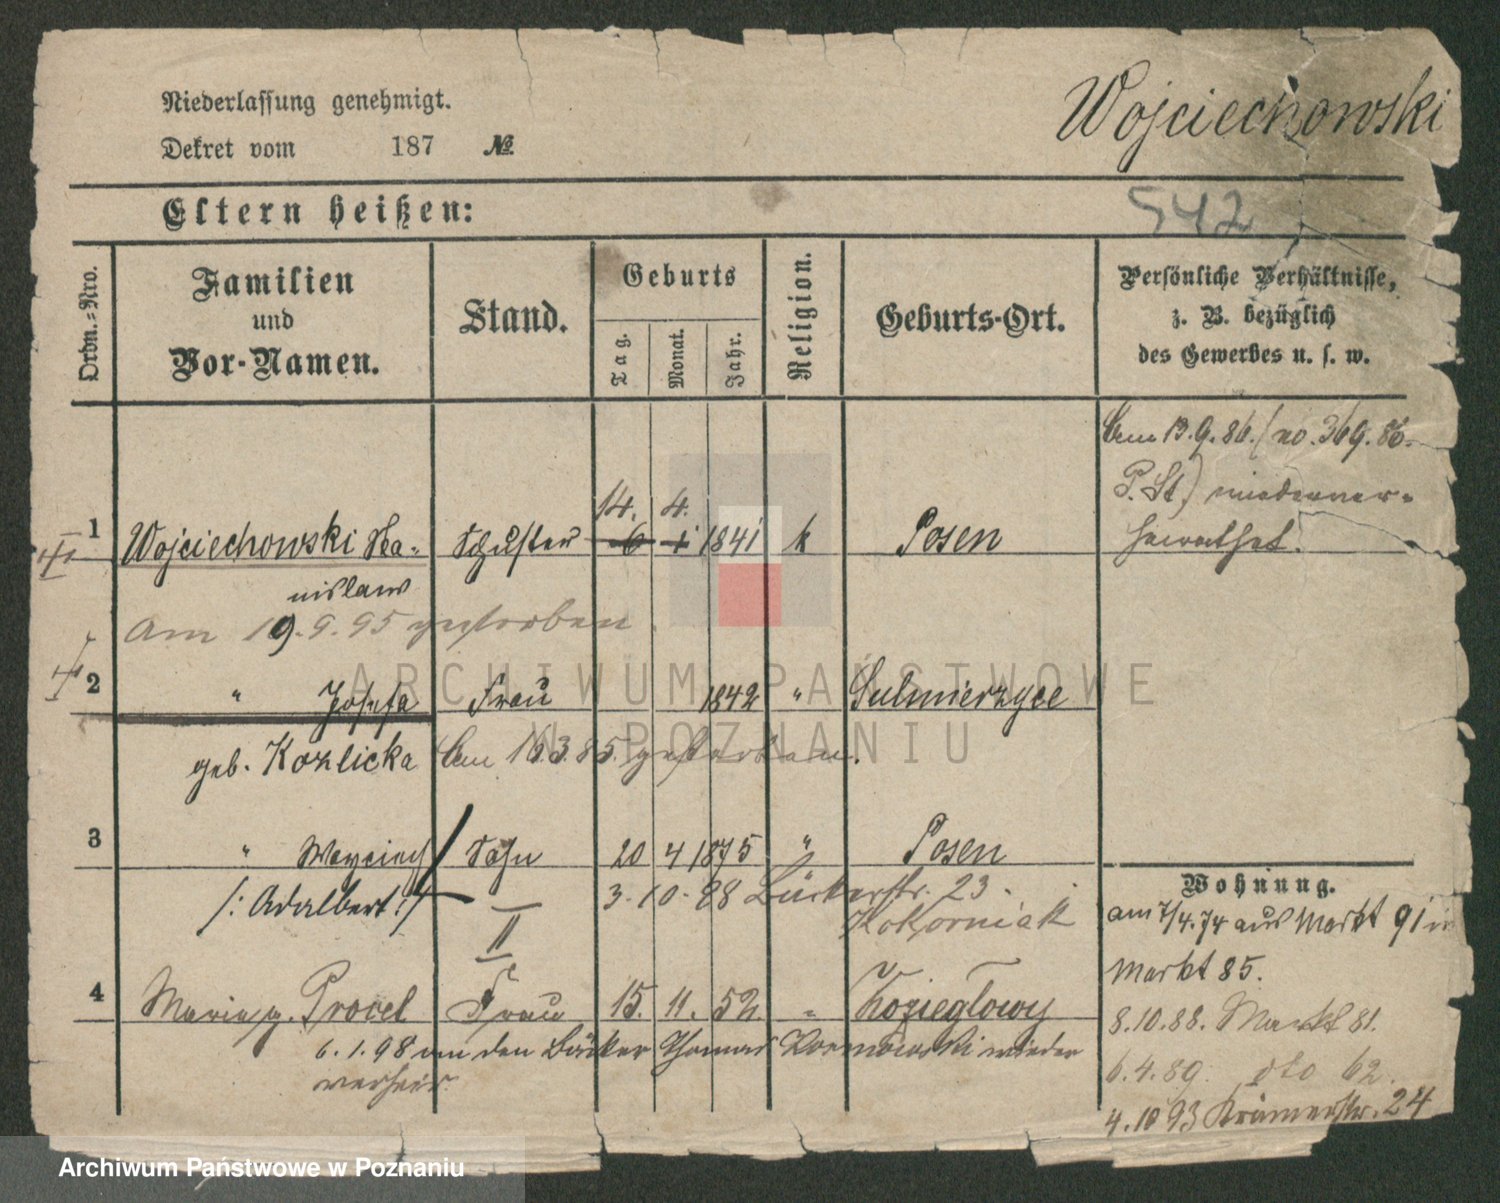 Niederlassung genehmigt.
Wojciechowski
Dekret vom 187 №.
542
Eltern heißen:
Ordn.=Nro.
Familien
und
Vor-Namen.
Stand.
Geburts
Tag.
Monat.
Jahr.
Religion.
Geburts-Ort.
Persönliche Verhältnisse,
z. B. bezüglich
des Gewerbes u. s. w.
Am 13.9.86. (no. 369.86.
P. St.) wiederver-
heirathet.
14. 4.
1 Wojciechowski Sta- Schuster 6 1 1841 k Posen
nislaw
Am 19.9.95 gestorben.
2 " Josefa Frau 1842 " Sulmierzyce
geb. Kozlicka Am 16.3.85. gestorben.
3 " Woyciech Sohn 20 4 1875 " Posen
/: Adalbert :/ 3.10.88 Bäckerstr. 23.
II
4 Maria g. Provel Frau 15. 11. 52. " Kozieglowy
6.1.98 an den Bäcker Thomas wieder
verheir.
Wohnung.
am 7/4.74 aus Markt 91 in
Markt 85.
8.10.88. Markt 81.
6.4.89. dto 62.
4.10 93 Krämerstr. 24
ARCHIWUM PAŃSTWOWE
W POZNANIU
Archiwum Państwowe w Poznaniu